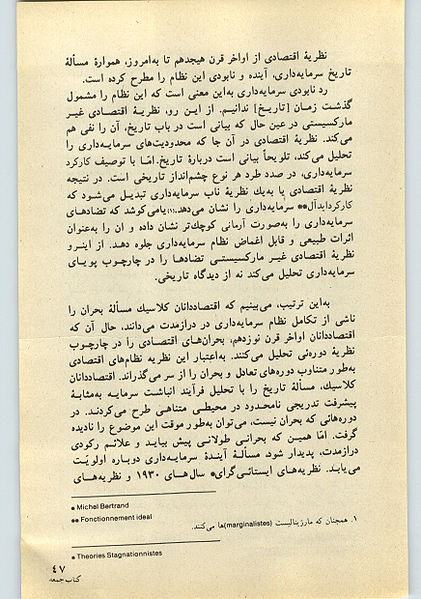 نظریهٔ اقتصادی از اواخر قرن هیجدهم تا به‌امروز، همواره مسألهٔ
تاریخ سرمایه‌داری، آینده و نابودی این نظام را مطرح کرده است.
رد نابودی سرمایه‌داری به‌این معنی است که این نظام را مشمول
گذشت زمان [تاریخ] ندانیم. از این رو، نظریهٔ اقتصادی غیر
مارکسیستی در عین حال که بیانی است در باب تاریخ، آن را نفی هم
می‌کند. نظریهٔ اقتصادی در آن جا که محدودیت‌های سرمایه‌داری را
تحلیل می‌کند، تلویحاً بیانی است دربارهٔ تاریخ. امّا با توصیف کارکرد
سرمایه‌داری، در صدد طرد هر نوع چشم‌انداز تاریخی است. در نتیجه
نظریهٔ اقتصادی یا به‌یك نظریهٔ ناب سرمایه‌داری تبدیل می‌شود که
کارکرد ایدآل** سرمایه‌داری را نشان می‌دهد.(۱) یا می‌کوشد که تضادهای
سرمایه‌داری را به‌صورت آرمانی کوچك‌تر نشان داده و ان را به‌عنوان
اثرات طبیعی و قابل اغماض نظام سرمایه‌داری جلوه دهد. از اینرو
نظریهٔ اقتصادی غیر مارکسیستی تضادها را در چارچوب پویای
سرمایه‌داری تحلیل می‌کند نه از دیدگاه تاریخی.
به‌این ترتیب، می‌بینیم که اقتصاددانان کلاسیك مسألهٔ بحران را
ناشی از تکامل نظام سرمایه‌داری در درازمدت می‌دانند، حال آن که
اقتصاددانان اواخر قرن نوزدهم، بحران‌های اقتصادی را در چارچوب
نظریهٔ دوره‌ئی تحلیل می‌کنند. به‌اعتبار این نظریه نظام‌های اقتصادی
به‌طور متناوب دوره‌های تعادل و بحران را از سر می‌گذراند. اقتصاددانان
کلاسیك، مسألهٔ تاریخ را با تحلیل فرآیند انباشت سرمایه به‌مثابهٔ
پیشرفت تدریجی نامحدود در محیطی متناهی طرح می‌کردند. در
دوره‌هائی که بحران نیست، می‌توان به‌طور موقت این موضوع را نادیده
گرفت. امّا همین که بحرانی طولانی پیش بیاید و علائم رکودی
درازمدت، پدیدار شود، مسألهٔ آیندهٔ سرمایه‌داری دوباره اولویّت
می‌یابد. نظریه‌های ایستائی‌گرای* سال‌های ۱۹۳۰ و نظریه‌های
* Michel Bertrand
** Fonctionnement ideal
۱. همچنان که مارژینالیست (marginalistes)ها می‌کنند.
* Theories Stagnationnistes
۴۷
کتاب جمعه